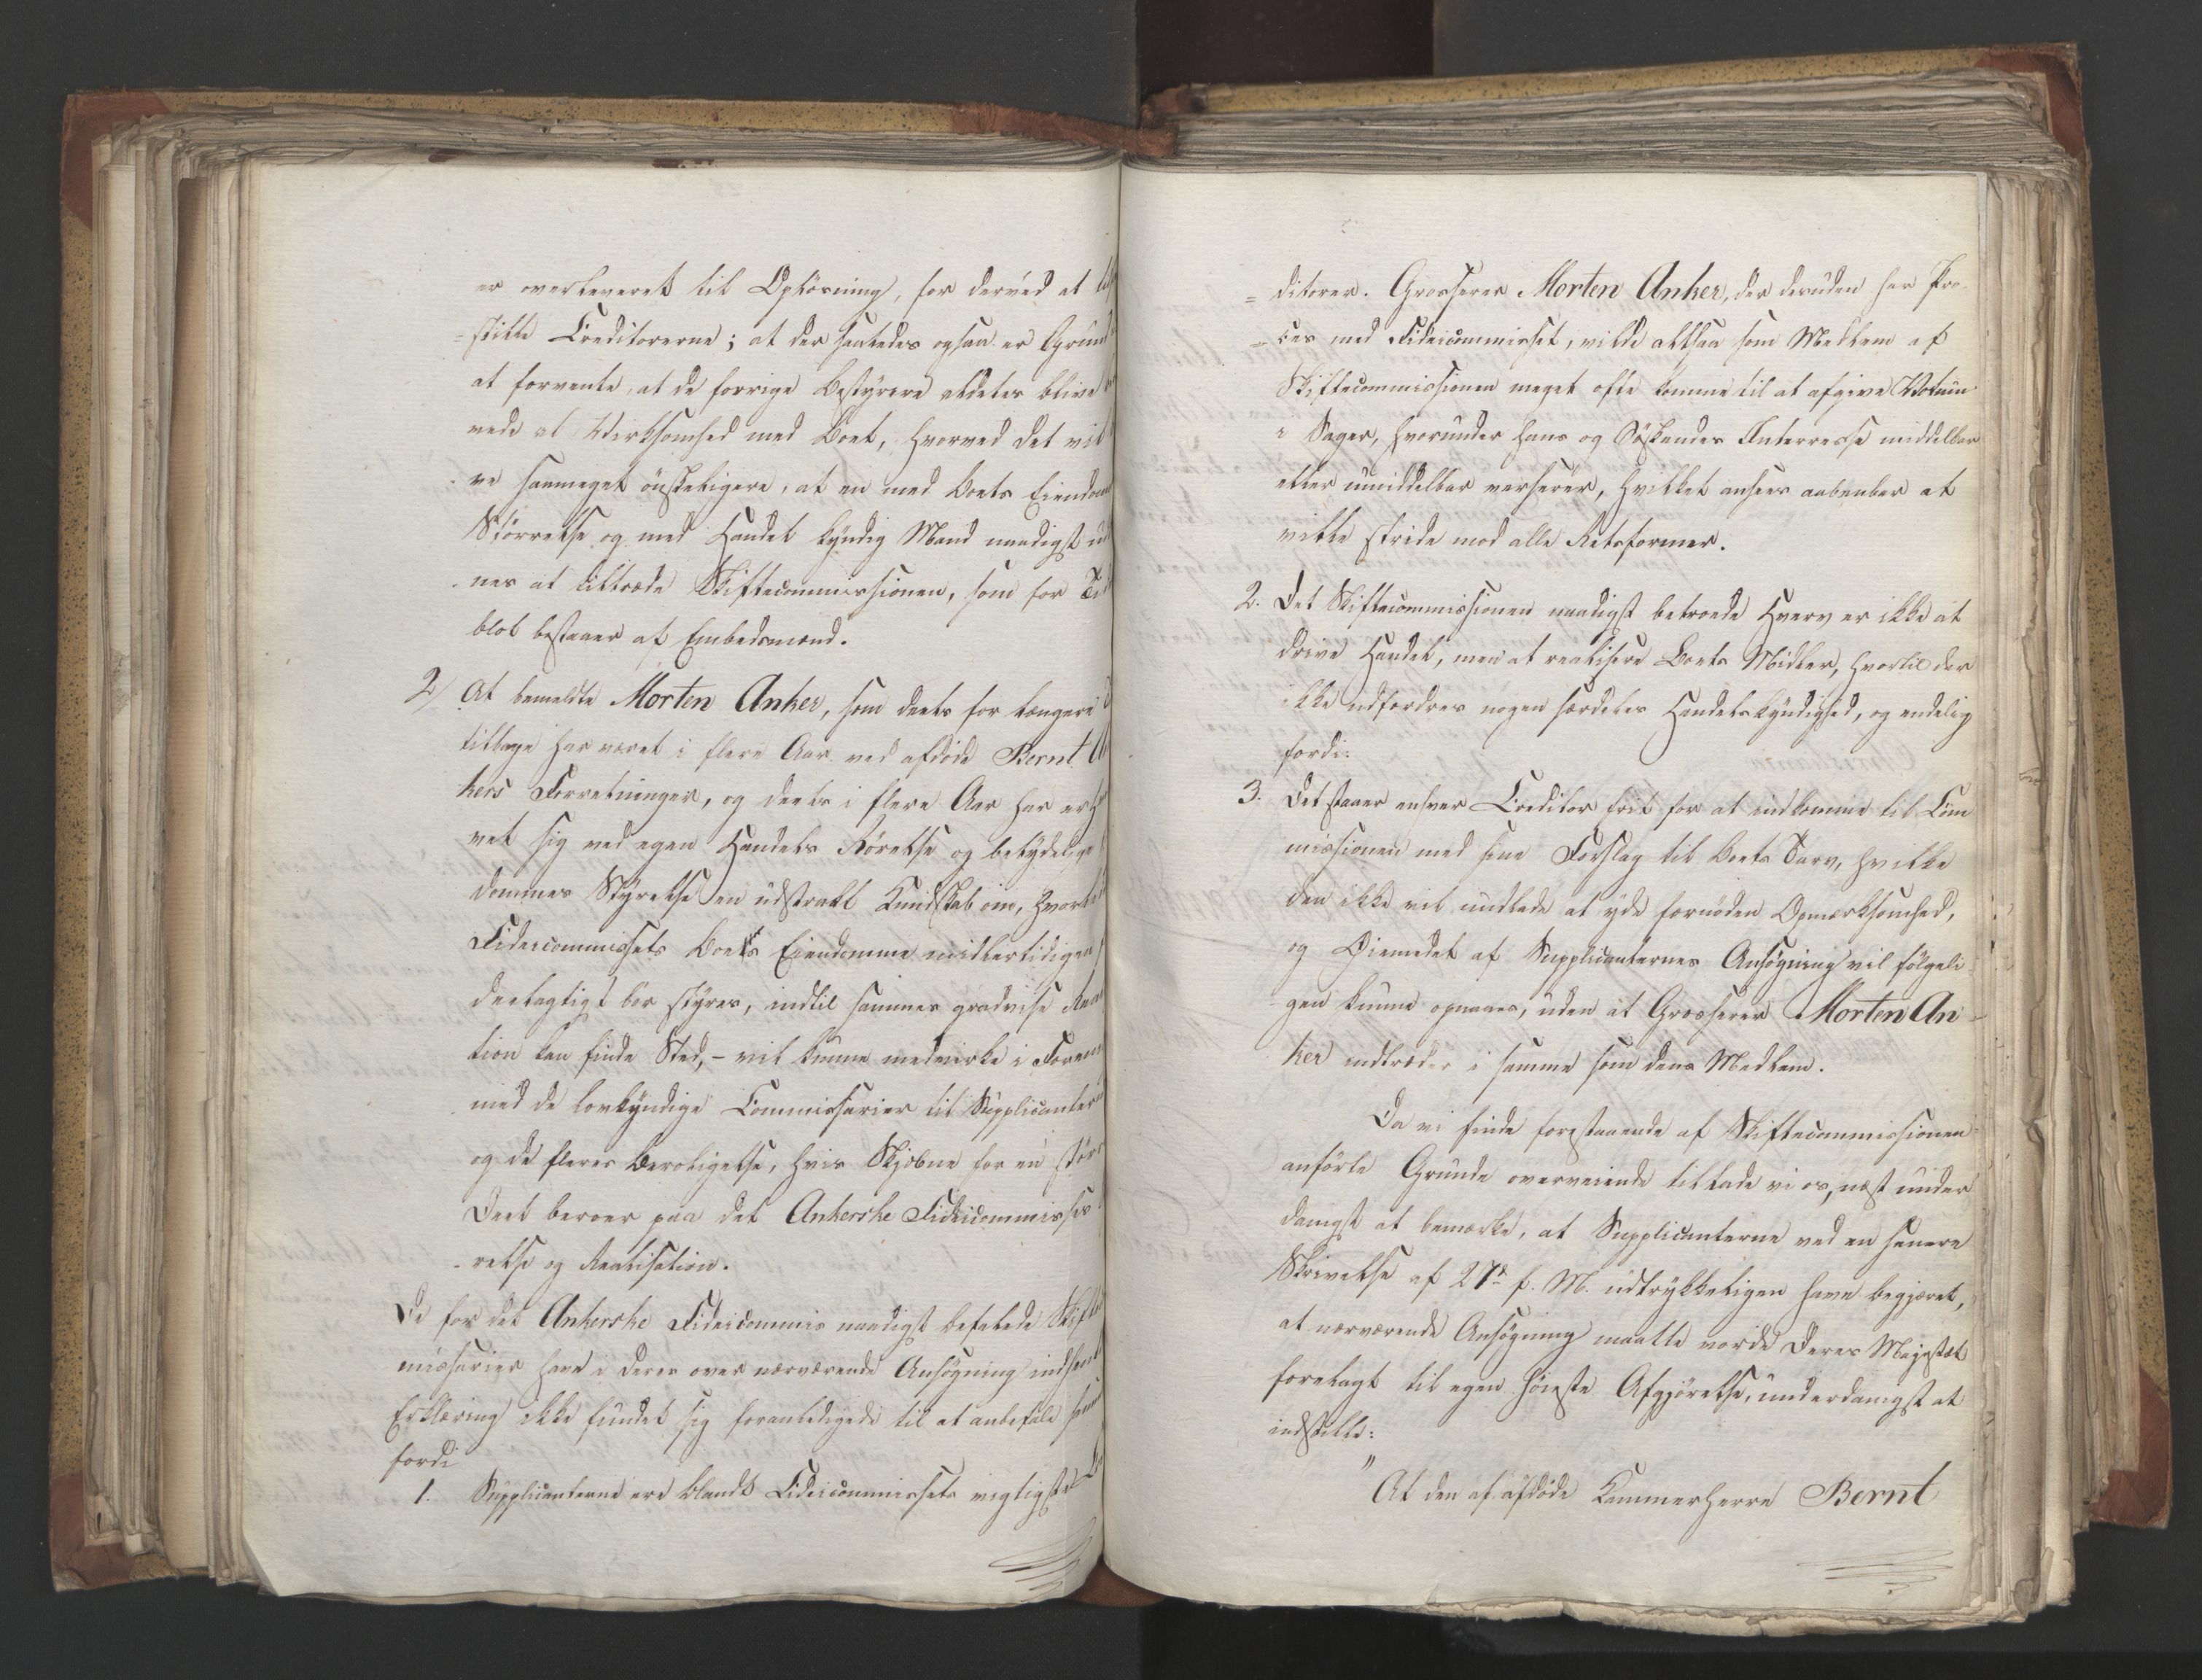 er overleveret til Opløsning, for derved at til
=stille Creditorerne; at der saaledes ogsaa er Grund
at forvente, at de forrige Bestyrere aldeles blive
nede al Virksomhed med Boet, hvorved det vil
ve saameget ønskeligere, at en med Boets Eiendom
Størrelse og med Handel kyndig Mand naadigst ud
nes at tiltræde Skiftecommissionen, som for Ti
blot bestaaer af Embedsmænd.
2/ At bemeldte Morten Anker, som deels for længere
tilbage har været i flere Aar ved afdøde Bernt
kers Forretninger, og deels i flere Aar har erh
vet sig ved egen Handels Førelse og betydelige
dommes Styrelse en udstrakt Kundskab om, hvorle
Fideicommissets Boets Eiendomme midlertidigen
deeltagtigst bør styres, indtil sammes gradvise Rea
tion kan finde Sted, - vil kunne medvirke i Foren
med de lovkyndige Commissarier til Supplicantern
og de fleres Beroligelse, hvis Skjebne for en stør
Deel beroer paa det Ankerske Fideicommisses
relse og Realisation.
De for det Ankerske Fideicommis naadigst befalede Skifte
missarier have i deres over nærværende Ansøgning indsend
Erklæring ikke fundet sig foranledigede til at anbefale samm
fordi
1. Supplicanterne ere blandt Fideicommissets vigtigste
=ditorer. Grosserer Morten Anker, der desuden har Pro
=ces med Fideicommisset, vilde altsaa som Medlem af
Skiftecommissionen meget ofte komme til at afgive Votum
i Sager, hvorunder hans og Søskendes Interresse middelbar
eller umiddelbar verserer, hvilket ansees aabenbar at
ville stride mod alle Retsformer.
2. Det Skiftecommissionen naadigst betroede Hverv er ikke at
drive Handel, men at realisere Boets Midler, hvortil der
ikke udfordres nogen særdeles Handelskyndighed, og endelig
fordi:
3. Det staaer enhver Creditor frit for at indkomme til Com
missionen med sine Forslag til Boets Tarv, hvilke
den ikke vil undlade at yde fornøden Opmærksomhed,
og Øiemedet af Supplicanternes Ansøgning vil følgeli
gen kunne opnaaes, uden at Grosserer Morten An=
ker indtræder i samme som dens Medlem.
Da vi finde forestaaende af Skiftecommissionen
anførte Grunde overveiende tillade vi os, næst under
danigst at bemærke, at Supplicanterne ved en senere
Skrivelse af 27de f. M. udtrykkeligen have begjæret,
at nærværende Ansøgning maatte vorde Deres Majestæt
forelagt til egen høieste Afgjørelse, underdanigst at
indstille:
" At den af afdøde Kammerherre Bernt